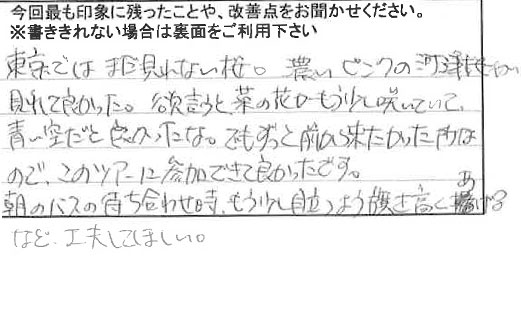 今回最も印象に残ったことや、改善点をお聞かせください。
※書ききれない場合は裏面をご利用下さい
東京ではまだ見れない桜。濃いピンクの河津桜が
見れて良かった。欲言うと、菜の花がもう少し咲いていて、
青い空だと良かったな。でもずっと前から来たかった所な
ので、このツアーに参加できて良かったです。
朝のバスの待ち合わせ時、もう少し目立つよう旗を高くあげる
など、工夫してほしい。